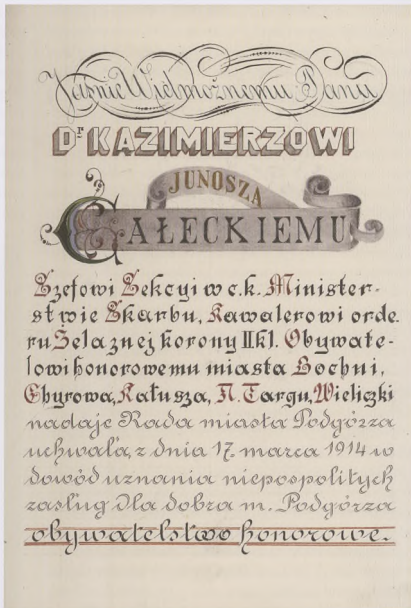 Jaśnie Wielmożnemu Panu
Dr KAZIMIERZOWI
JUNOSZA
GAŁECKIEMU
Szefowi Sekcyi w c.k. Minister-
stwie Skarbu, Kawalerowi orde-
ru Żelaznej korony II kl. Obywate-
lowi honorowemu miasta Bochni,
Chyrowa, Kałusza, N. Targu, Wieliczki
nadaje Rada miasta Podgórza
uchwałą z dnia 17. marca 1914 w
dowód uznania niepospolitych
zasług dla dobra m. Podgórza
obywatelstwo honorowe.